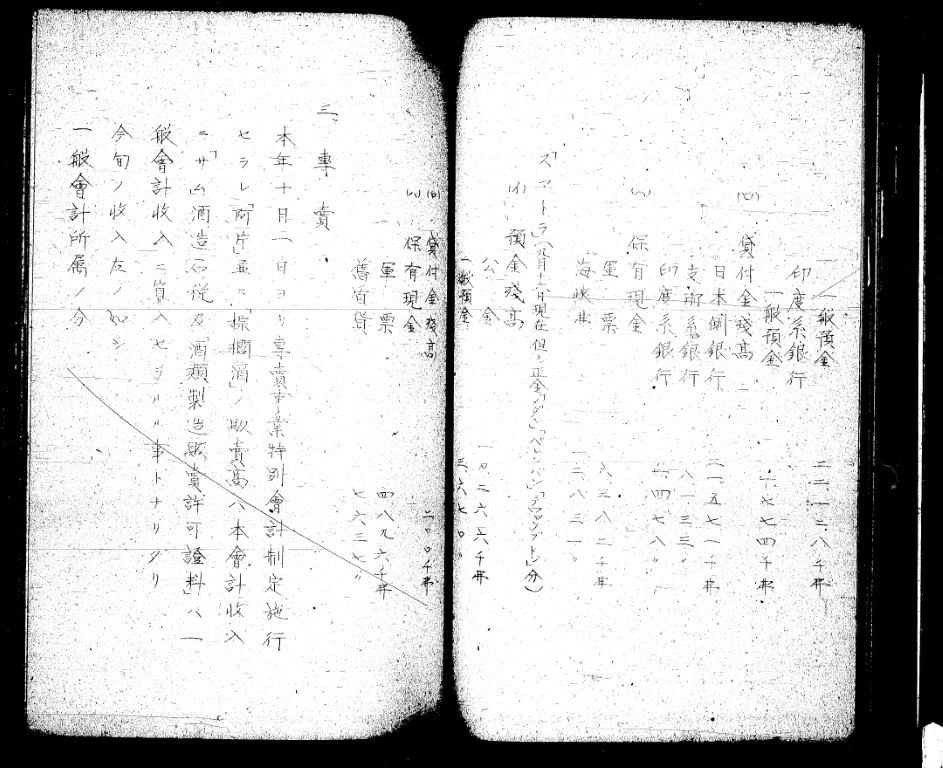 一般預金 二二一二八千弗
印度系銀行
一般預金 一六七七四千弗
(ロ) 貸付金残高
日本側銀行 二一五七一千弗
支那系銀行 八一三三〃
印度系銀行 六四七八〃
(ハ) 保有現金
軍票 六三八二千弗
海峡弗 一三八三一〃
「スマトラ」(九月十六日現在但シ正金「メダン」「パレンバン」分)
(イ) 預金残高
公金 一九二六六千弗
一般預金 三六六七〇〃
(ロ) 貸付金残高 二〇〇千弗
(ハ) 保有現金
軍票 四八九六千弗
舊通貨 七六三七〃
三、專賣
本年十月一日ヨリ專賣事業特別會計制定施行
セラレ「阿片」並ニ「椰子酒」ノ販賣高ハ本會計收入
ニ「サム」酒造石税及「酒類製造販賣許可證料」ハ一
般會計收入ニ算入セラルル事トナリタリ
今旬ノ收入左ノ如シ
一般會計所屬ノ分